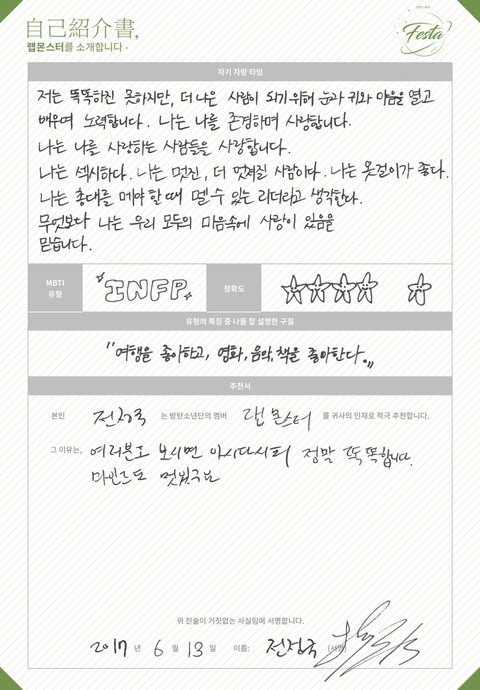 自己紹介書,
랩몬스터를 소개합니다 -
Festa
자기 자랑 타임
저는 똑똑하진 못하지만, 더 나은 사람이 되기 위해 눈과 귀와 마음을 열고
배우며 노력합니다. 나는 나를 존경하며 사랑합니다.
나는 나를 사랑하는 사람들을 사랑합니다.
나는 섹시하다. 나는 멋진, 더 멋져질 사람이다. 나는 옷걸이가 좋다.
나는 총대를 메야 할 때 멜 수 있는 리더라고 생각한다.
무엇보다 나는 우리 모두의 마음속에 사랑이 있음을
믿습니다.
MBTI 유형
INFP
정확도
유형의 특징 중 나를 잘 설명한 구절
"여행을 좋아하고, 영화,음악,책을 좋아한다."
추천서
본인 전정국 는 방탄소년단의 멤버 랩몬스터 를 귀사의 인재로 적극 추천합니다.
그 이유는, 여러분도 보시면 아시다시피 정말 똑똑합니다.
마인드도 멋있구요
위 진술이 거짓없는 사실임에 서명합니다.
2017 년 6 월 13 일 이름: 전정국 (서명)